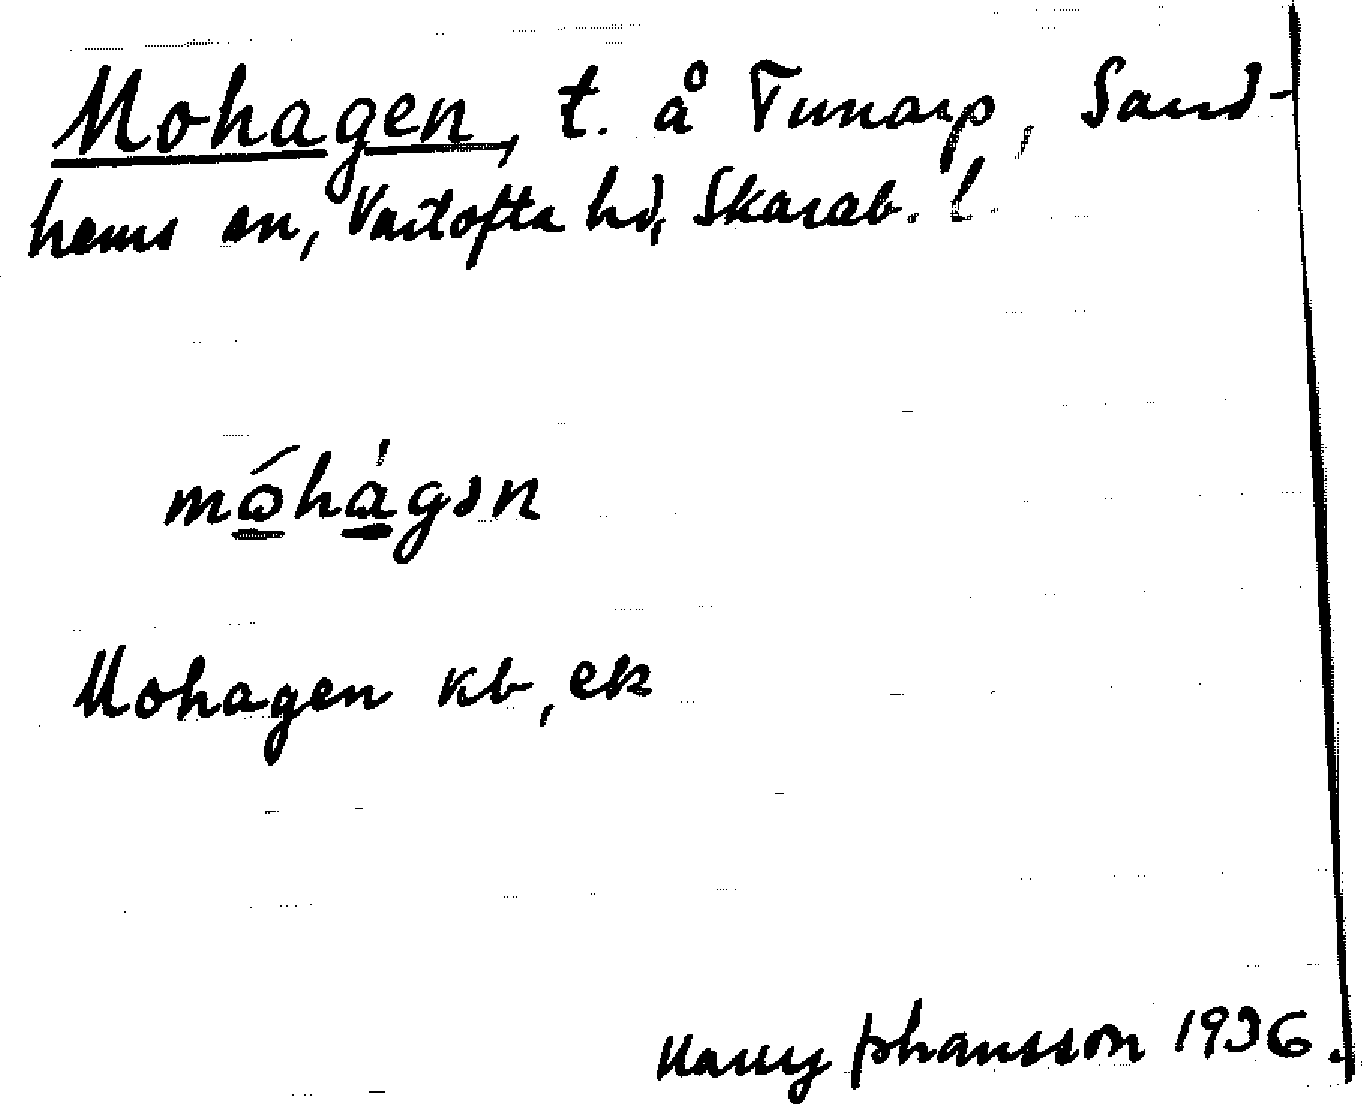 Mohagen, t. å Tunarp, Sand-
hems sn, Vartofta hd, Skarab. l.
móhágən
Mohagen kb, ek
Harry Johansson 1936.